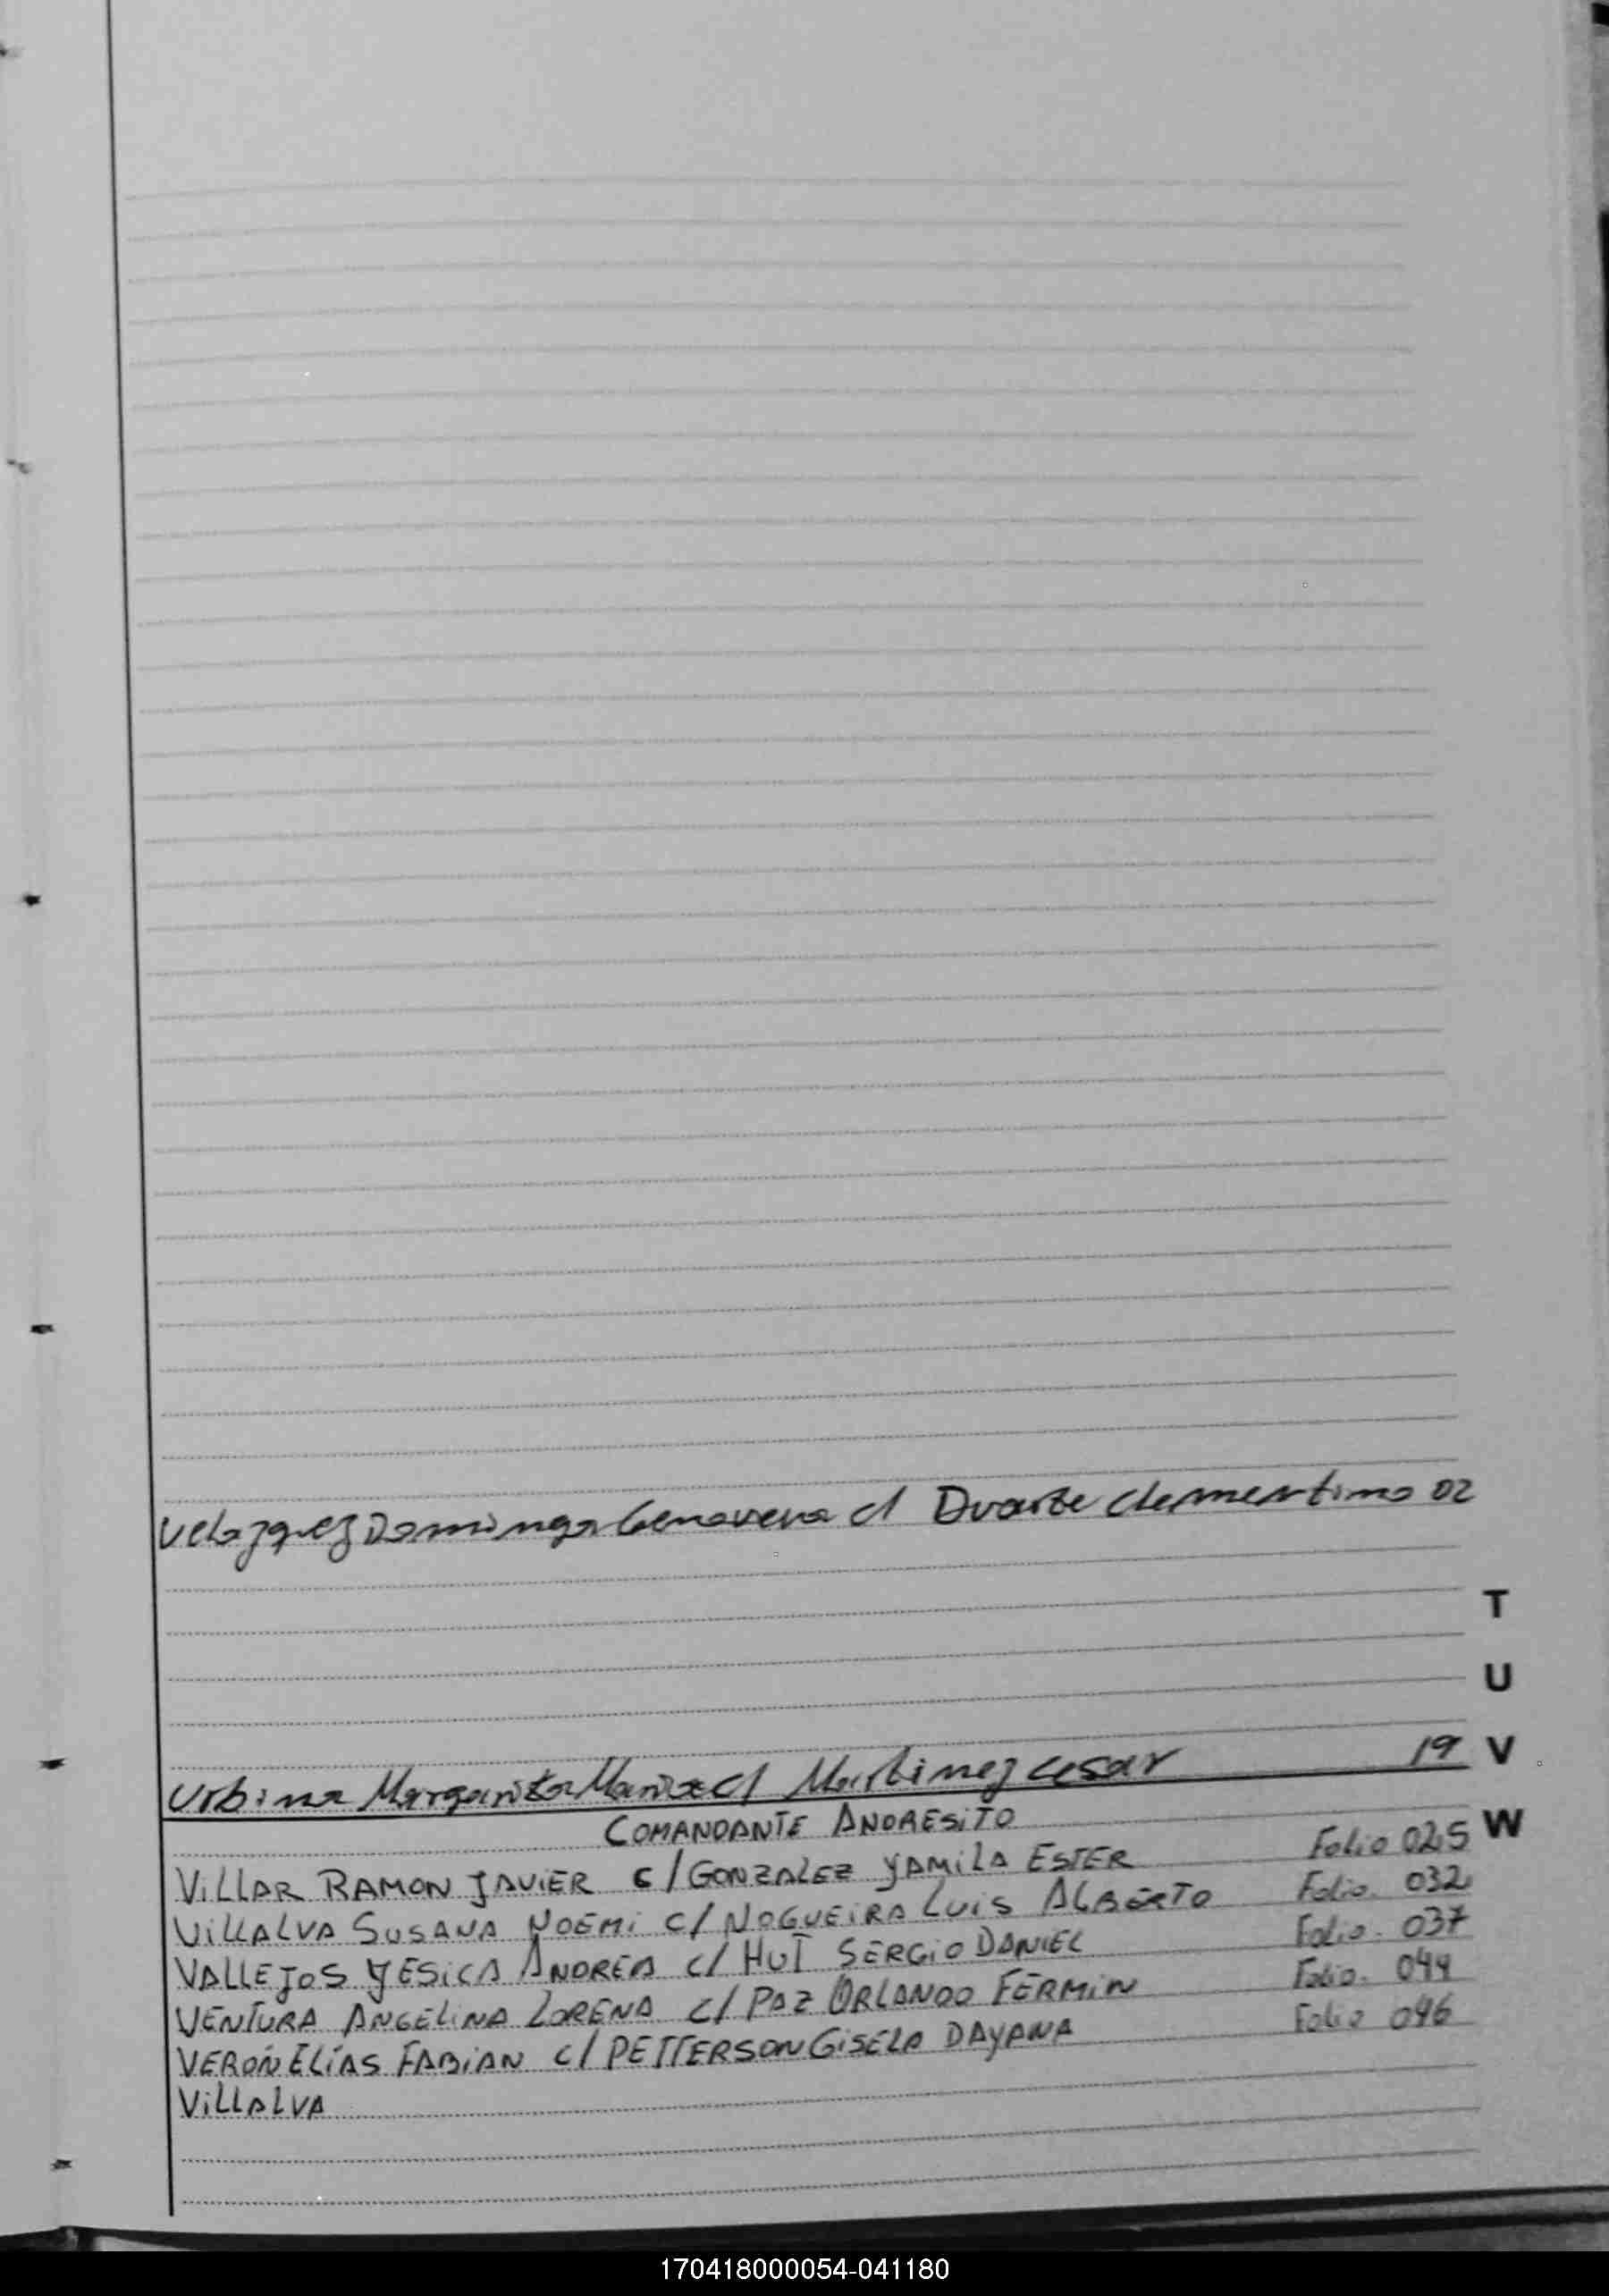 Velazquez Dominga Genoveva c/ Duarte Clementino 02
T
U
Urbina Margarita Maria c/ Martinez Cesar 19 V
COMANDANTE ANDRESITO
W
VILLAR RAMON JAVIER C/ GONZALEZ YAMILA ESTER Folio 025
VILLALVA SUSANA NOEMI C/ NOGUEIRA LUIS ALBERTO Folio. 032
VALLEJOS YESICA ANDREA C/ HUT SERGIO DANIEL Folio. 037
VENTURA ANGELINA LORENA C/ PAZ ORLANDO FERMIN Folio. 044
VERÓN ELÍAS FABIAN C/ PETTERSON GISELA DAYANA Folio 046
VILLALVA
170418000054-041180